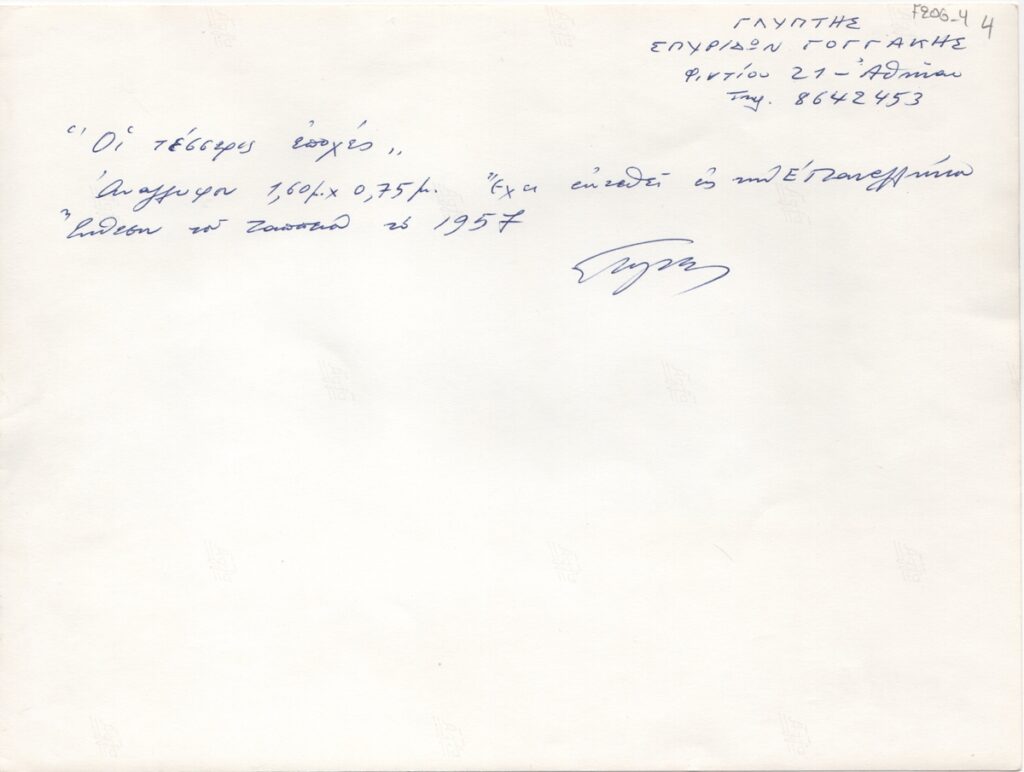 F206-4 4
ΓΛΥΠΤΗΣ
ΣΠΥΡΙΔΩΝ ΓΟΓΓΑΚΗΣ
Φιντίου 21 - Ἀθῆναι
Τηλ. 8642453
"Οἱ τέσσερις ἐποχές„
Ἀνάγλυφον 1,60μ. χ 0,75μ. Ἔχει ἐκτεθεῖ εἰς τήν Ε΄ Πανελλήνιον
Ἔκθεση τοῦ Ζαππείου τό 1957